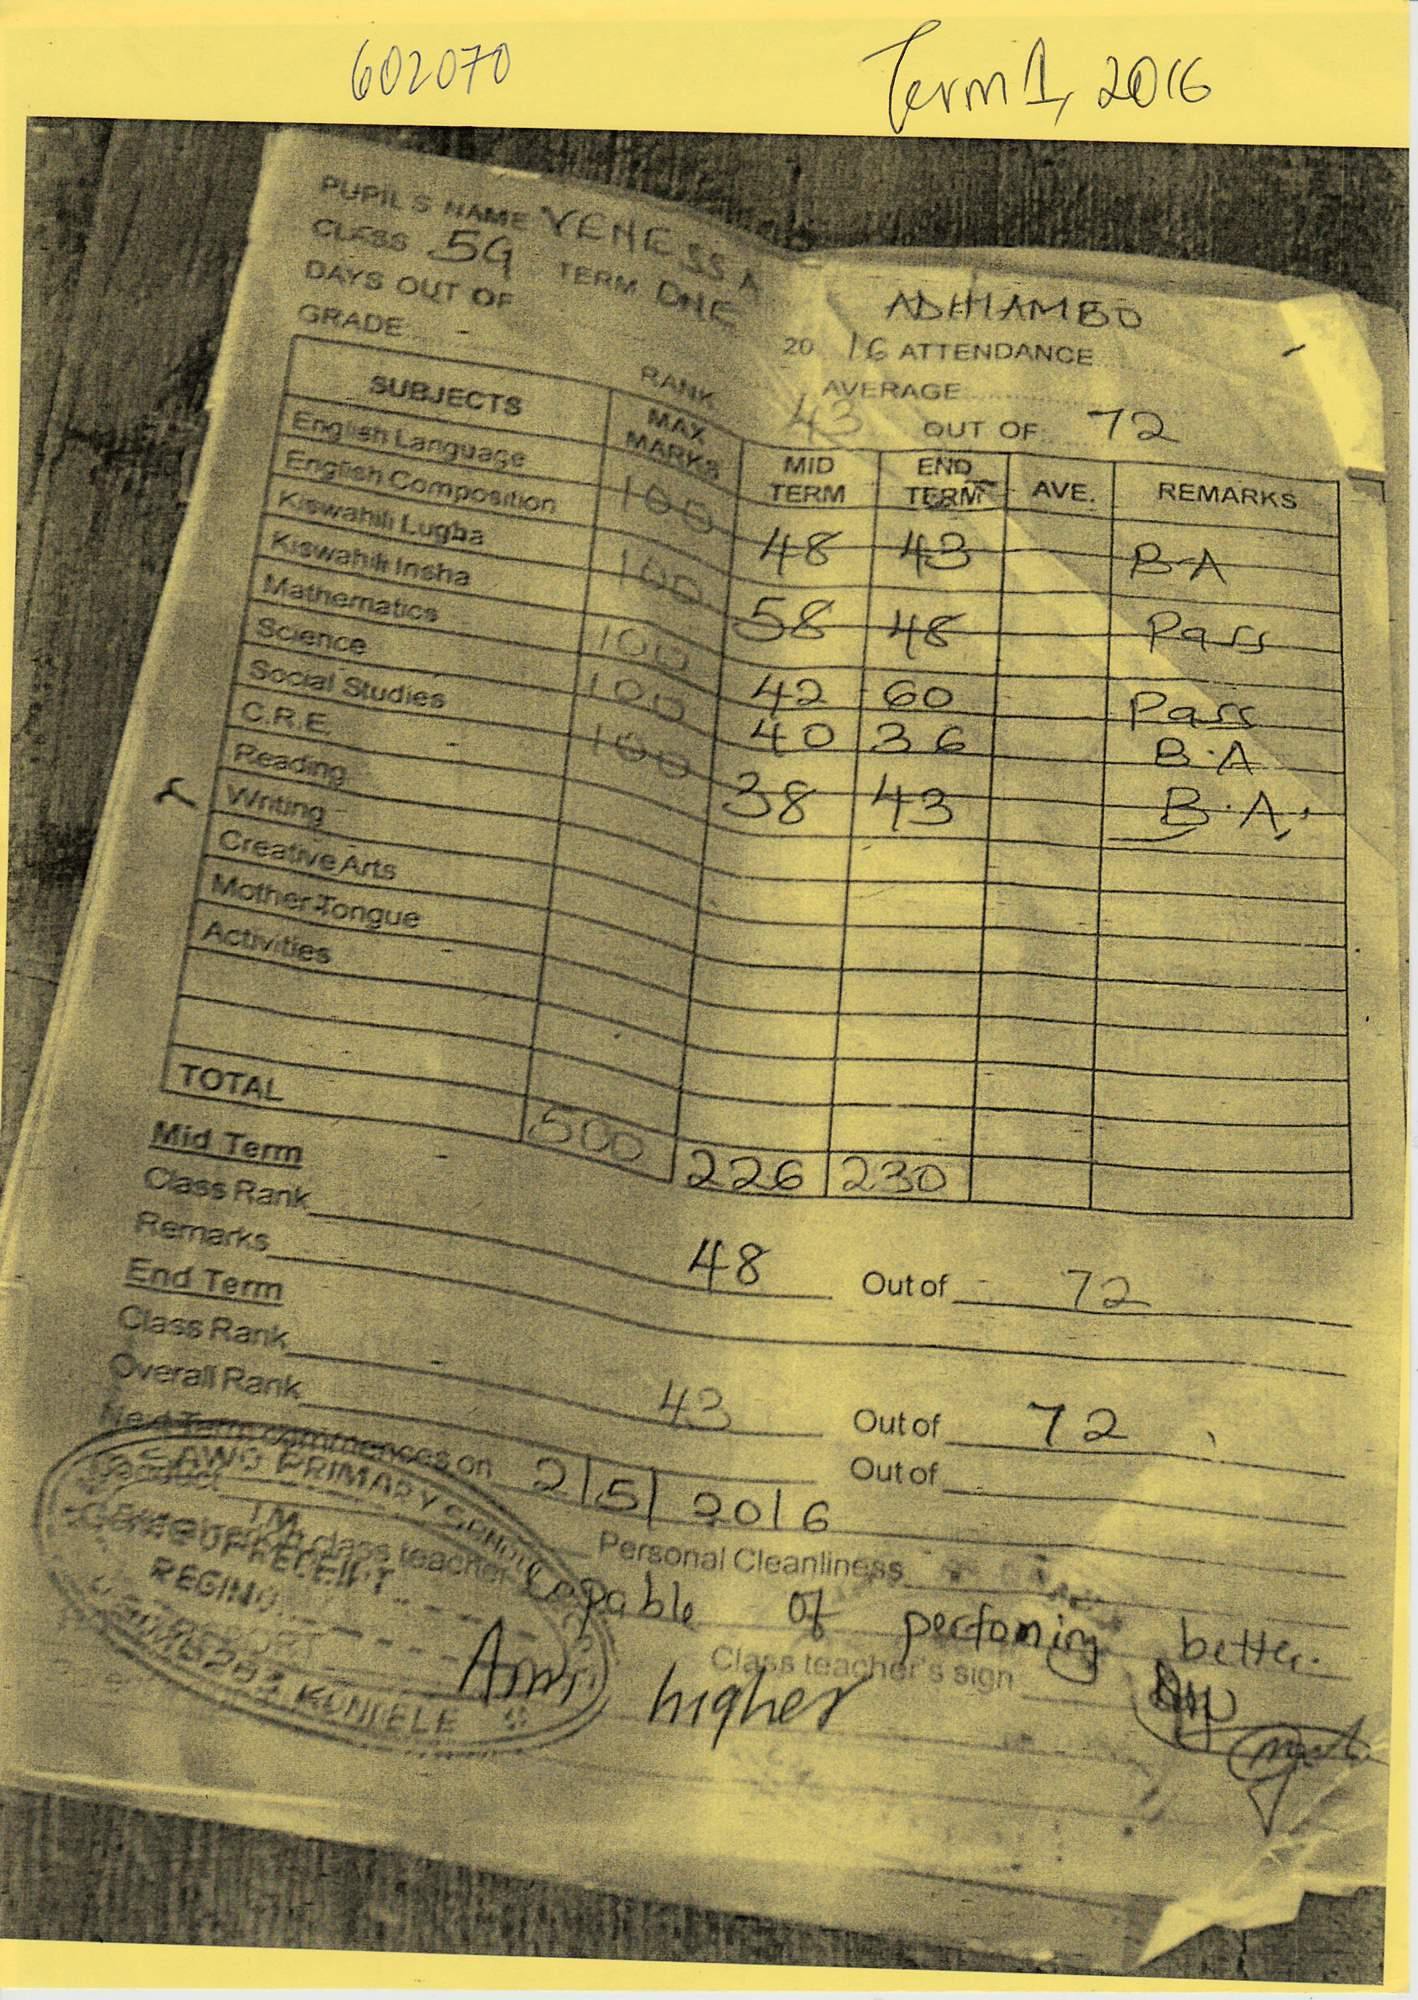 602070 Term 1, 2016
PUPIL'S NAME VENESSA ADHIAMBO
CLASS 5G TERM ONE 2016 ATTENDANCE
DAYS OUT OF AVERAGE
GRADE RANK 43 OUT OF 72
SUBJECTS MAX MARKS MID TERM END TERM AVE. REMARKS
English Language 100 48 43 B.A
English Composition
Kiswahili Lugha 100 58 48 Pass
Kiswahili Insha
Mathematics 100 42 60 Pass
Science 100 40 36 B.A
Social Studies 100 38 43 B.A.
C.R.E.
Reading
Writing
Creative Arts
Mother Tongue
Activities
TOTAL 500 226 230
Mid Term
Class Rank 48 Out of 72
Remarks
End Term
Class Rank 43 Out of 72
Overall Rank Out of
Next Term commences on 2/5/2016
Conduct Personal Cleanliness
class teacher Capable of perfoming better.
Class teacher's sign
higher
AWO PRIMARY SCHOOL